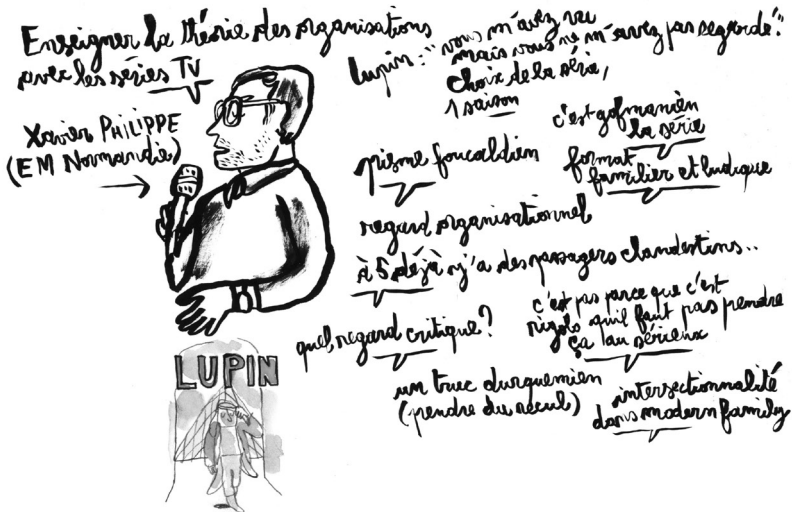 Enseigner la théorie des organisations
avec les séries TV
Xavier PHILIPPE
(EM Normandie)
Lupin: "vous m'avez vu
mais vous ne m'avez pas regardé!"
choix de la série,
1 saison
c'est gofmanien
la série
prisme foucaldien
format
familier et ludique
regard organisationnel
à 5 déjà y'a des passagers clandestins..
quel regard critique?
c'est pas parce que c'est
rigolo qu'il faut pas prendre
ça au sérieux
un truc durquemien
(prendre du recul)
intersectionnalité
dans modern family
LUPIN